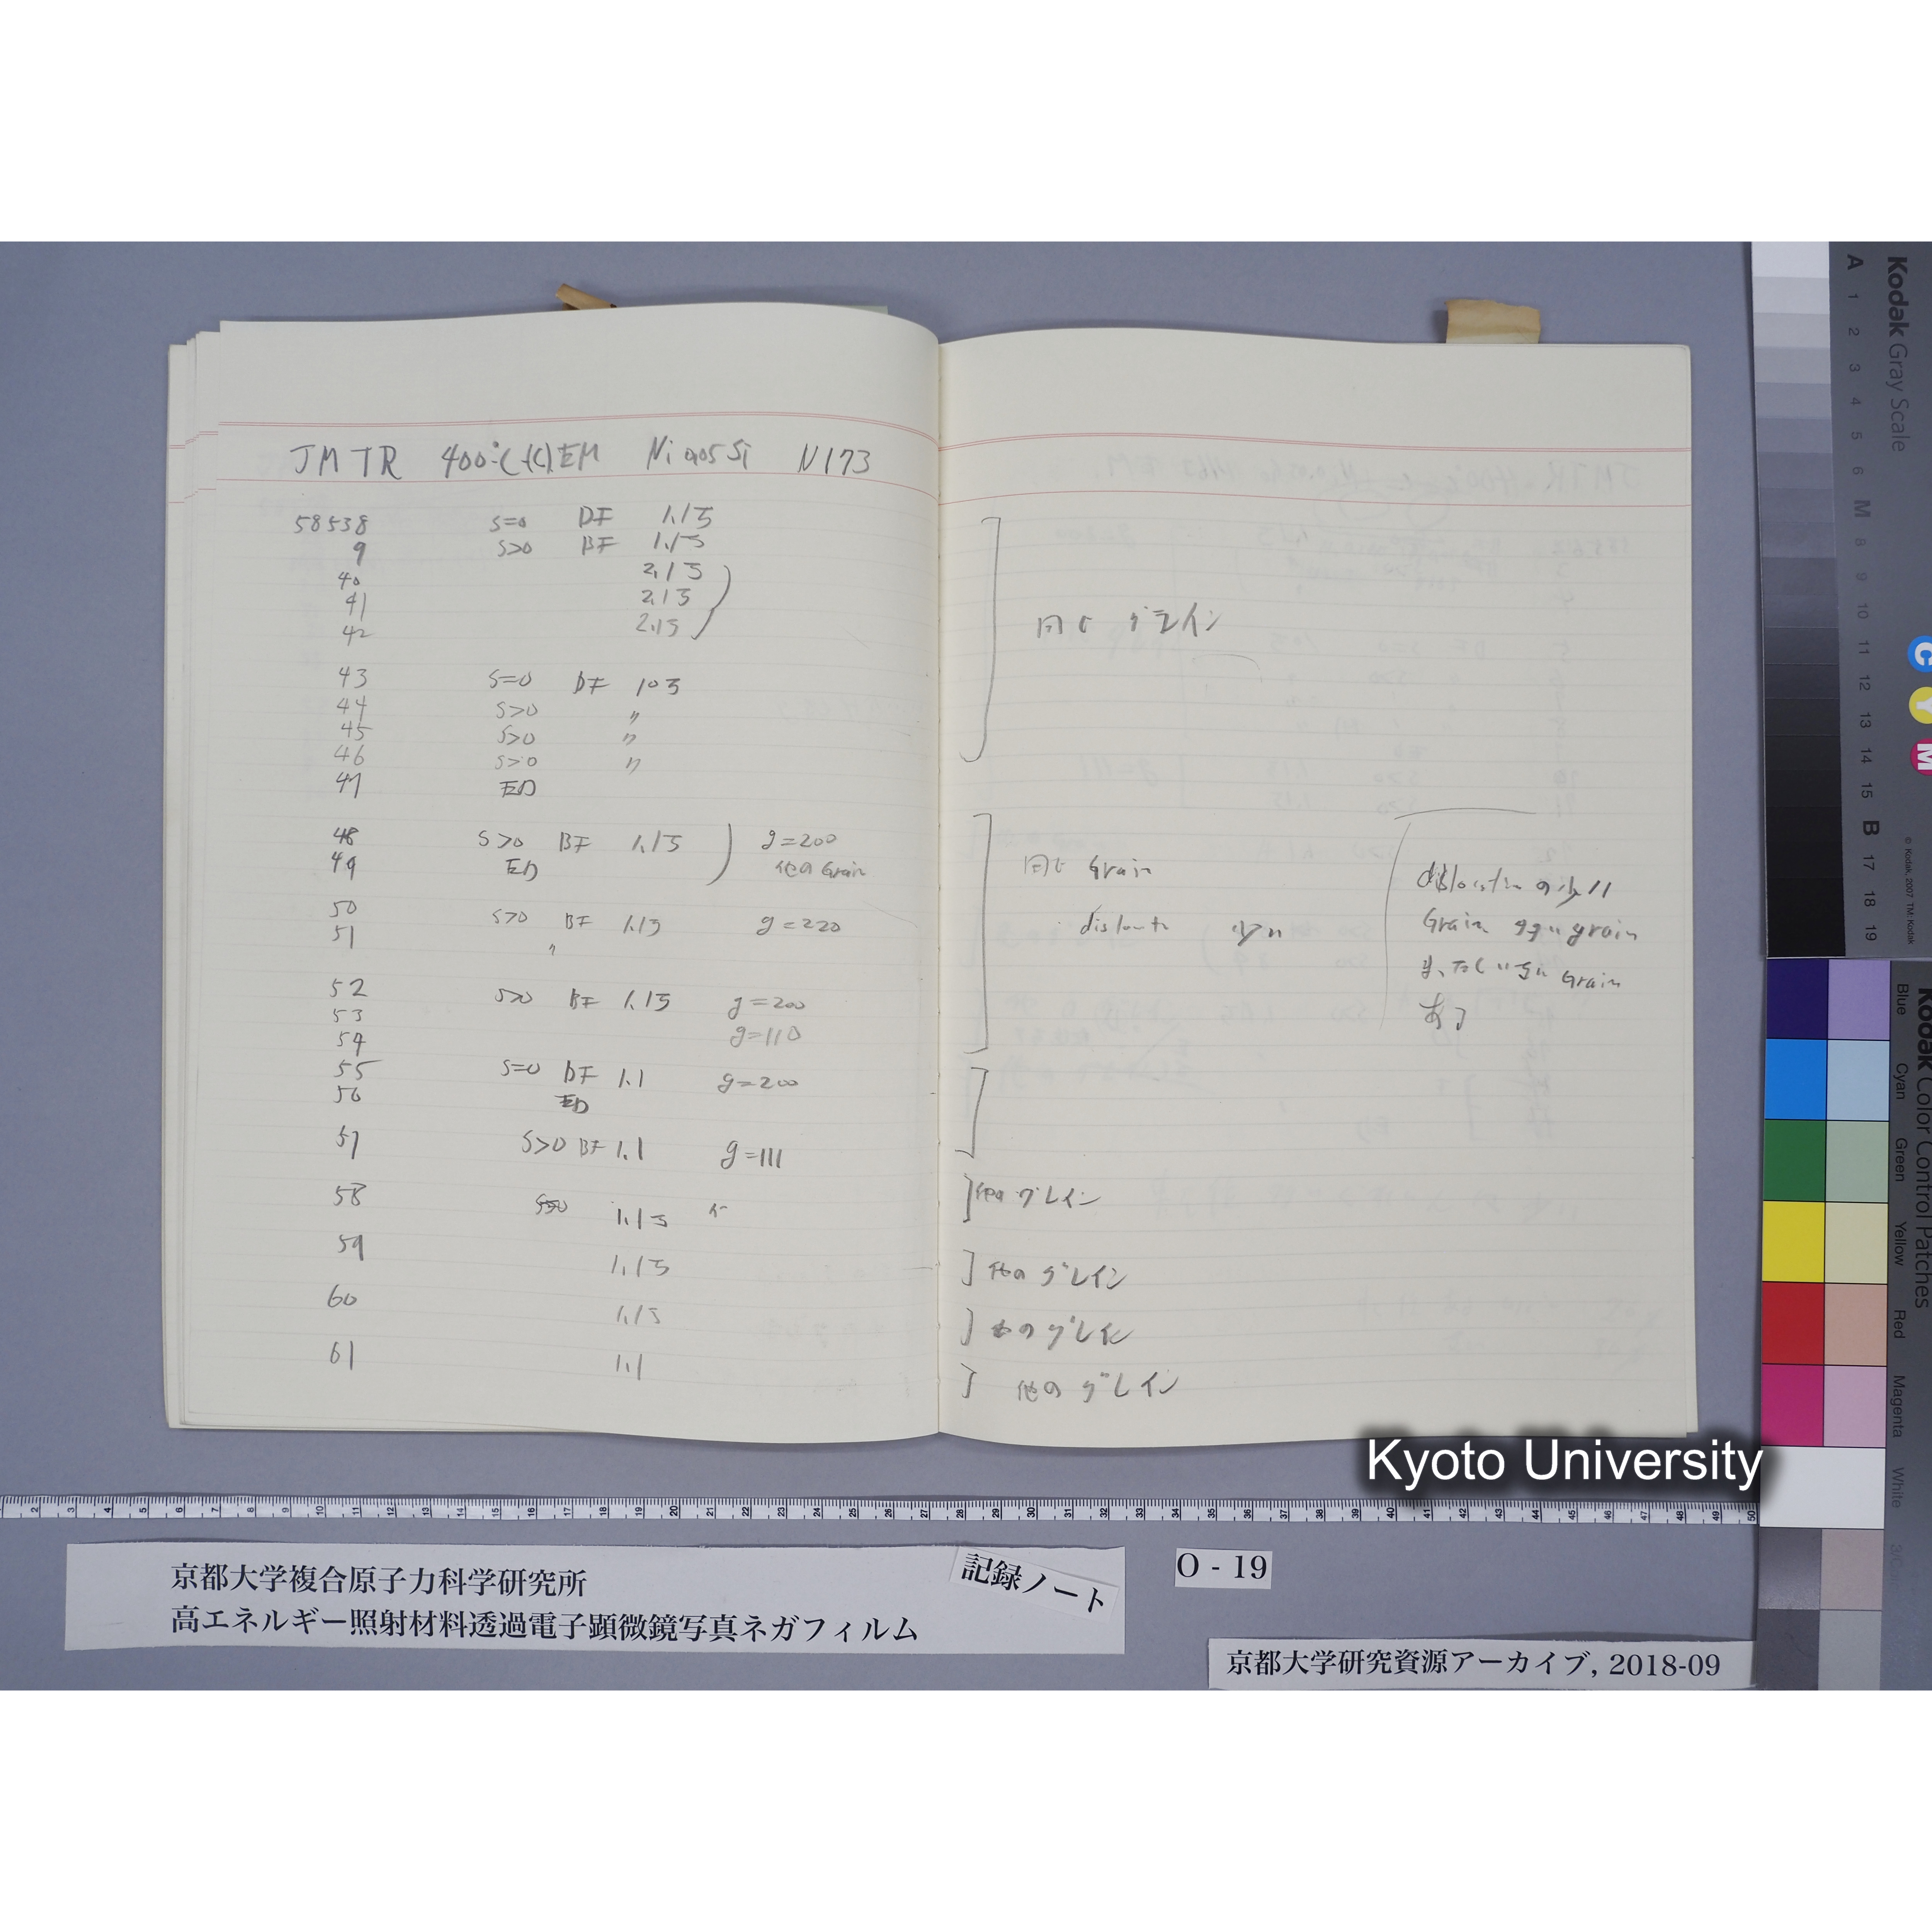 JMTR 400℃ EM Ni 0.05 Si N173
58538 S=0 DF 1.1万
9 S>0 BF 1.1万
40 2.1万
41 2.1万
42 2.1万
同じ グレイン
43 S=0 DF 10万
44 S>0 〃
45 S>0 〃
46 S>0 〃
47 ED
48 S>0 BF 1.1万 g=200
49 ED 他のGrain
50 S>0 BF 1.1万 g=220
51 〃
52 S>0 BF 1.1万 g=200
53
54 g=110
同じ Grain
dislocationの少い
Grain
Grain
ある
55 S=0 DF 1.1 g=200
56 ED
57 S>0 BF 1.1 g=111
58 1.1万 他のグレイン
59 1.1万 他のグレイン
60 1.1万 他のグレイン
61 1.1 他のグレイン
Kyoto University
京都大学複合原子力科学研究所
高エネルギー照射材料透過電子顕微鏡写真ネガフィルム
記録ノート
O - 19
京都大学研究資源アーカイブ, 2018-09
Kodak Gray Scale
A 1 2 3 4 5 6 M 8 9 10 11 12 13 14 15 B 17 18 19
© Kodak, 2007 TM: Kodak
C
Y
M
Kodak Color Control Patches
Blue Cyan Green Yellow Red Magenta White